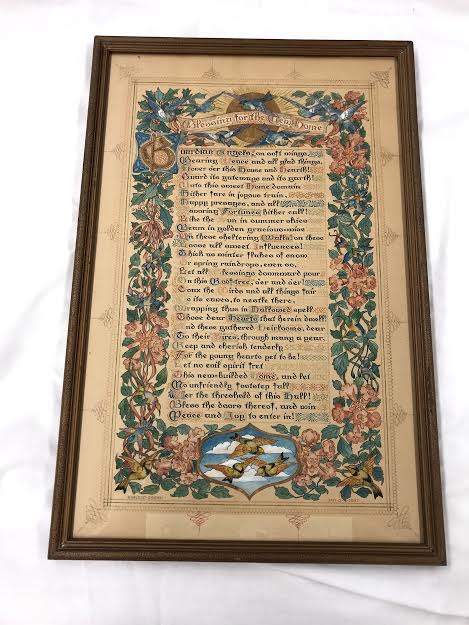 A Blessing for the New Home
Guardian Angels, on soft wings
Bearing Peace and all glad things,
Hover o'er this House and Hearth!
Guard its gateways and its garth!
Unto this sweet Home domain
Hither fare in joyous train,
Happy presages, and all
Favoring Fortunes hither call!
Like the Sun in summer skies
Beam in golden gracious-wise
On these sheltering Walls! on these
Loose all sweet Influences!
Thick as winter flakes of snow
Or spring raindrops, even so,
Let all Blessings downward pour
On this Roof-tree, o'er and o'er!
Coax the Birds and all things fair
To its eaves, to nestle there.
Wrapping thus in Hallowed spell
Those dear Hearts that herein dwell
And these gathered Heirlooms, dear
To their Sires, through many a year,
Keep and cherish tenderly
For the young hearts yet to be!
Let no evil spirit fret
This new-builded Home, and let
No unfriendly footstep fall
O'er the threshold of this Hall!
Bless the doors thereof, and win
Peace and Joy to enter in!